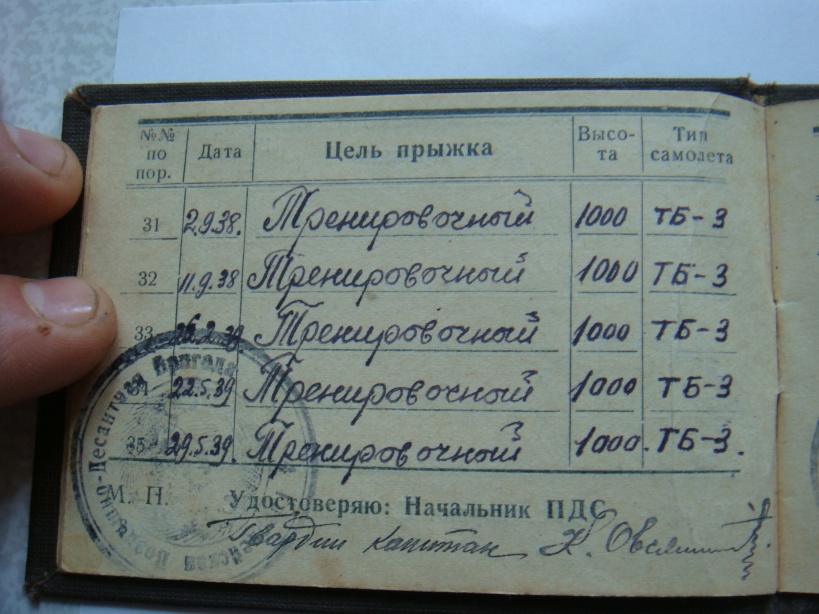 №№ по пор. Дата Цель прыжка Высо-та Тип самолета
31 2.9.38. Тренировочный 1000 ТБ-3
32 11.9.38 Тренировочный 1000 ТБ-3
33 Тренировочный 1000 ТБ-3
34 22.5.39 Тренировочный 1000 ТБ-3
35 29.5.39. Тренировочный 1000. ТБ-3.
М. П. Удостоверяю: Начальник ПДС
Гвардии капитан
Десантная Бригада